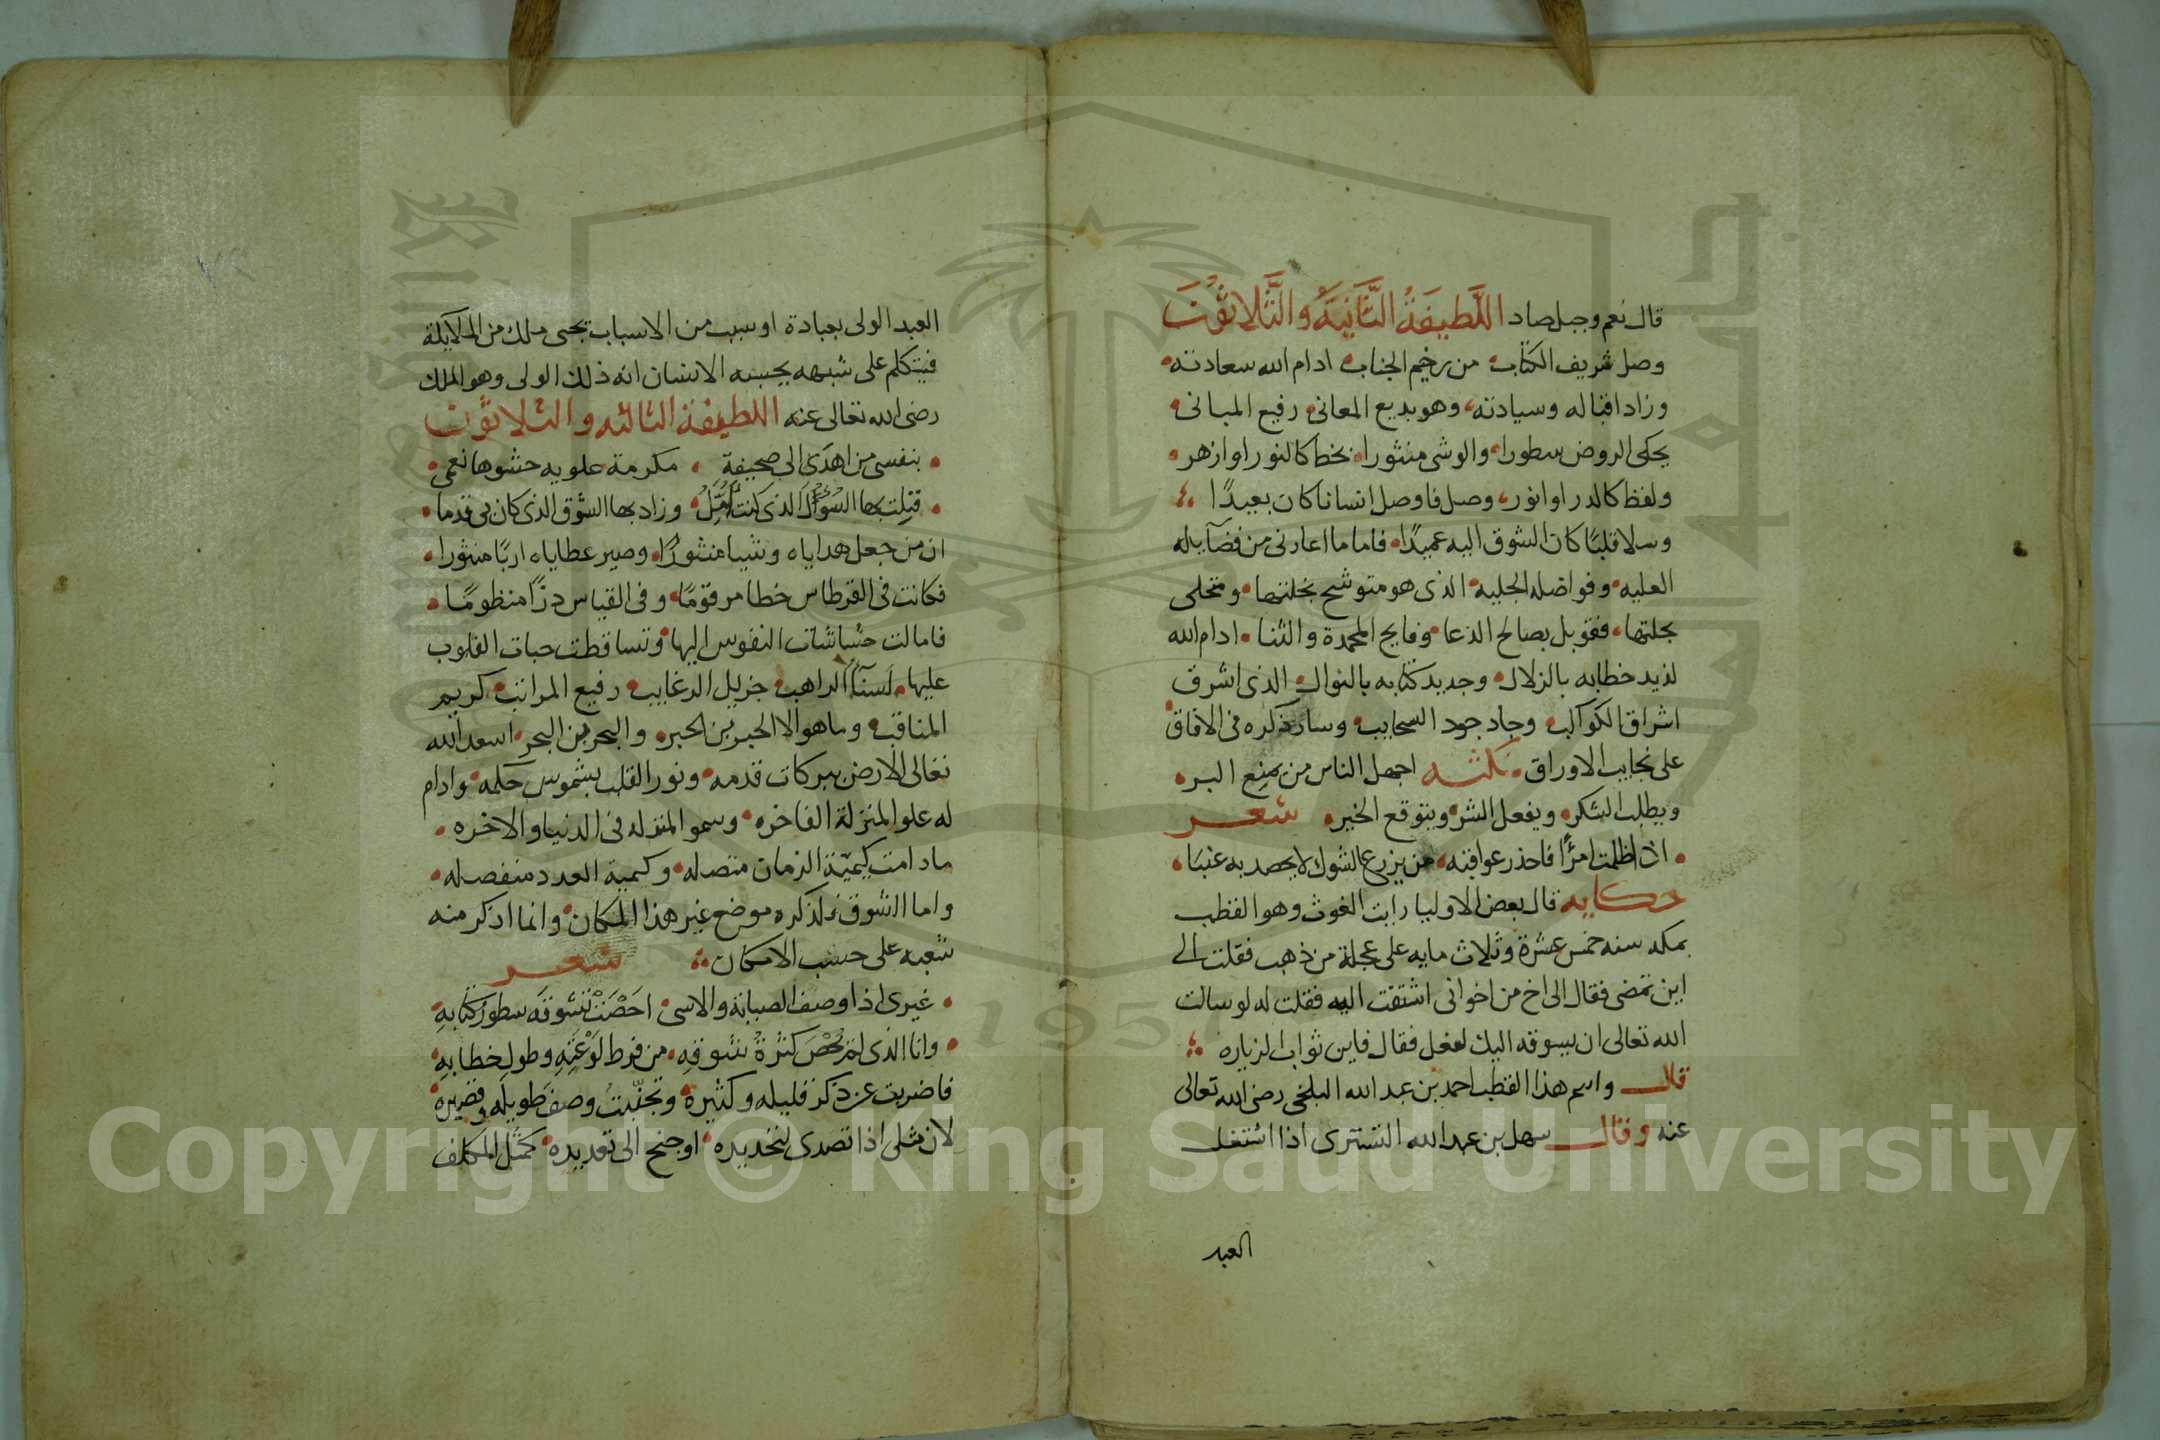 قال نعم وجبل صاد اللَّطيفَةُ الثَّانِيَةُ والثَّلاثُونَ
وصل شريف الكتاب من رخيم الجناب ادام الله سعادته
وزاد اقباله وسيادته وهو بديع المعانى رفيع المبانى
يحكى الروض سطورا والوشى منثورا بخط كالنور او ازهر
ولفظ كالدر او انور وصل فاوصل انسانا كان بعيدًا
وسلا قلبًا كان الشوق اليه عميدًا فاما ما اعارنى من فضآيله
العليه وفواضله الجليه الذى هو متوشح بخلتها ومتحلى
بحلتها فقوبل بصالح الدعا وفايح المحمدة والثنا ادام الله
لذيذ خطابه بالزلال وجديد كتابه بالنوال الذى اشرق
اشراق الكواكب وجاد جود السحايب وسار ذكره فى الافاق
على نجايب الاوراق نكثه اجهل الناس من يمنع البر
ويطلب الشكر ويفعل الشر ويتوقع الخير شعر
اذا ظلمت امرًأ فاحذر عواقبه من يزرع الشوك لا يحصد به عنبًا
حكايه قال بعض الاوليا رايت الغوث وهو القطب
بمكه سنه خمس عشرة وثلاث مايه على عجلة من ذهب فقلت الى
اين تمضى فقال الى اخ من اخوانى اشتقت اليه فقلت له لو سالت
الله تعالى ان يسوقه اليك لفعل فقال فاين ثواب الزياره
قال واسم هذا القطب احمد بن عبد الله البلخى رضى الله تعالى
عنه وقال سهل بن عبد الله التسترى اذا اشتغل
العبد
العبد الولى بعبادة او سبب من الاسباب تجى ملك من الملآيكة
فيتكلم على شبهه يحسبه الانسان انه ذلك الولى وهو الملك
رضى الله تعالى عنه اللطيفة الثالثه والثلاثون
بنفسى من اهدى الى صحيفة مكرمة علويه حشوها نعمى
قبلت بها السؤل الذى كنت آمُل وزاد بها الشوق الذى كان بى قدما
ان من جعل هداياه وشيا منثورًا وصير عطاياه اربًا منثورا
فكانت فى القرطاس خطا مرقومًا وفى القياس درًا منظومًا
فامالت حشاشات النفوس اليها وتساقطت حبات القلوب
عليها جزيل الرغايب رفيع المراتب كريم
المناقب وما هو الا الحبر بن الحبر والبحر بن البحر اسعد الله
تعالى الارض ببركات قدمه ونور القلب بشموس حكمه وادام
له علو المنزلة الفاخره وسمو المنزله فى الدنيا والاخره
مادامت كيميّة الزمان متصله وكمية العدد منفصله
واما الشوق فلذكره موضع غير هذا المكان وانما اذكر منه
شعبه على حسب الامكان شعر
غيرى اذا وصف الصبابة والاسى احْصَتْ تشوقَه سطور كتابهِ
وانا الذى لم تُحْصَ كثرةُ شوقهِ من فرط لَوْعَتِهِ وطول خطابهِ
فاضربت عن ذكر قليله وكثيره وتجنّبتُ وصف طويله وقصيره
لان مثلى اذا تصدى لتحديده او جنح الى تعديده كمثل المكلف
Copyright © King Saud University
1957